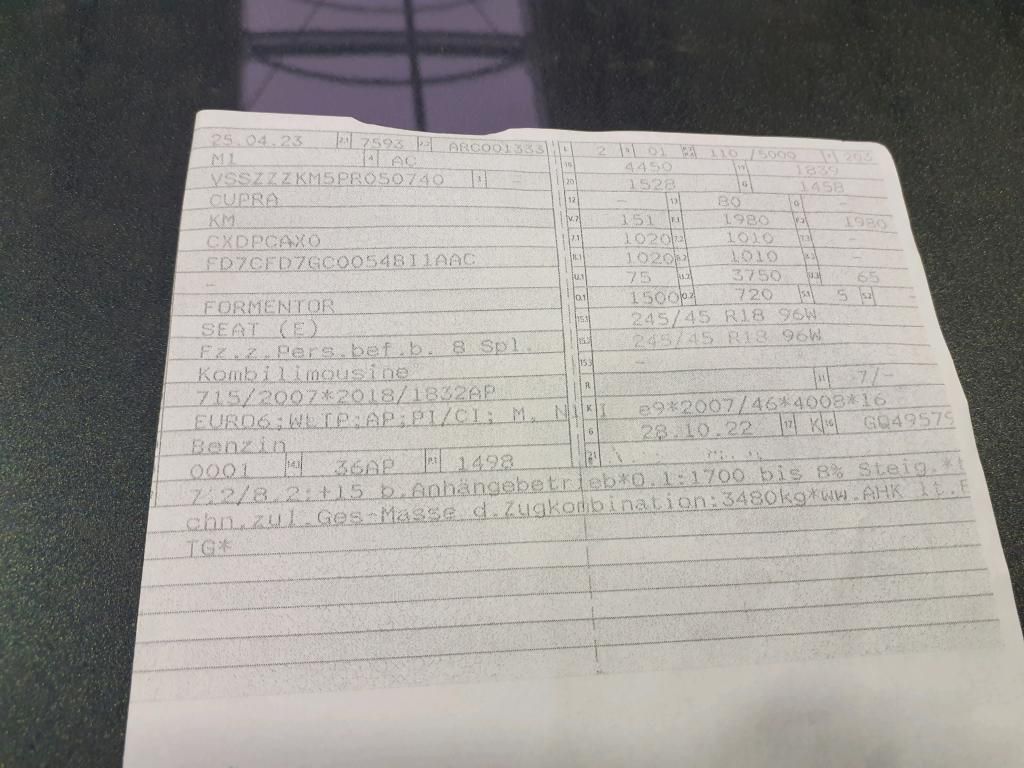 25.04.23 2.1 7593 2.2 ARC001333 L 2 9 01 110 /5000 T 203
M1 4 AC 18 4450 19 1839
VSSZZZKM5PR050740 3 - 20 1528 G 1458
CUPRA 12 - 13 80 Q -
KM V.7 151 F.1 1980 F.2 1980
CXDPCAX0 7.1 1020 7.2 1010 7.3 -
FD7CFD7GC00548I1AAC 8.1 1020 8.2 1010 8.3 -
- U.1 75 U.2 3750 U.3 65
FORMENTOR O.1 1500 O.2 720 S.1 5 S.2 -
SEAT (E) 15.1 245/45 R18 96W
Fz.z.Pers.bef.b. 8 Spl. 15.2 245/45 R18 96W
Kombilimousine 15.3 -
715/2007*2018/1832AP R 11 -7/-
EURO6;WLTP;AP;PI/CI; M, N1 I K e9*2007/46*4008*16
Benzin 6 28.10.22 17 K 16 GQ49579
0001 14.1 36AP P.1 1498 21
7.2/8.2:+15 b.Anhängebetrieb*O.1:1700 bis 8% Steig.*t
chn.zul.Ges-Masse d.Zugkombination:3480kg*ww.AHK lt.E
TG*